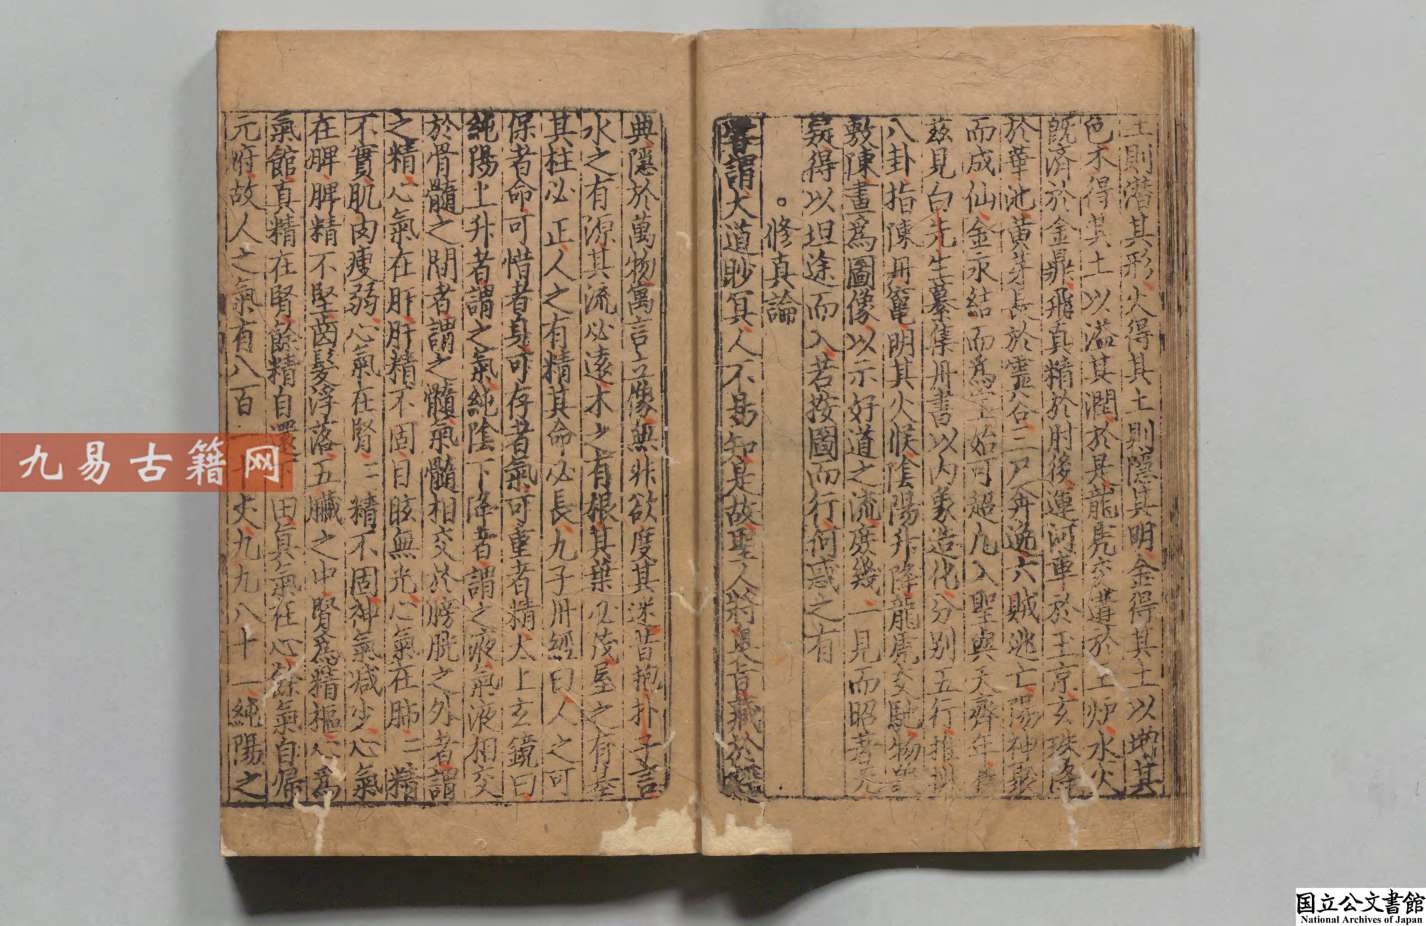 土則潛其形火得其土則隱其明金得其土以增其
色木得其土以滋其潤於是龍虎交媾於土炉水火
既濟於金鼎飛真精於肘後運河車於玉京玄珠降
於華池黃芽長於靈谷三尸奔逃六賊逃亡陽神聚
而成仙金永結而為宝始可超凡入聖與天齊年
茲見白先生纂集丹書以内象造化分别五行推
八卦指陳丹竈明其火候陰陽升降龍虎交馳物
敷陳畫為圖像以示好道之流庶幾一見而昭著无
疑得以坦途而入若按圖而行何惑之有
。修真論
嘗謂大道眇冥人不易知是故聖人將
典隱於萬物寓言立像無非欲度其迷昔抱朴子言
水之有源其流必遠木之有根其葉必茂屋之有基
其柱必正人之有精其命必長九子丹經曰人之可
保者命可惜者身可存者氣可重者精大上玄鏡曰
純陽上升者謂之氣純陰下降者謂之液氣液相交
於骨髓之間者謂之髓氣髓相交於膀胱之外者謂
之精心氣在肝肝精不固目眩無光心氣在肺二精
不實肌肉瘦弱心氣在腎二精不固神氣减少心氣
在脾脾精不堅齒髮浮落五臟之中腎為精樞心為
氣館真精在腎餘精自還下田真氣在心餘氣自歸
元府故人之氣有八百一十丈九九八十一純陽之
九易古籍网
国立公文書館
National Archives of Japan